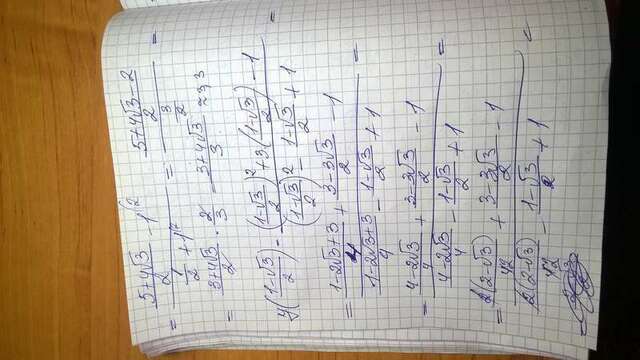 = \frac{\frac{5+4\sqrt{3}}{2} - 1^{(2}}{\frac{1}{2} + 1^{(2}} = \frac{\frac{5+4\sqrt{3}-2}{2}}{\frac{3}{2}} =
= \frac{3+4\sqrt{3}}{2} \cdot \frac{2}{3} = \frac{3+4\sqrt{3}}{3} ≈ 3,3
y(\frac{1-\sqrt{3}}{2}) = \frac{(\frac{1-\sqrt{3}}{2})^2 + 3 \cdot (\frac{1-\sqrt{3}}{2}) - 1}{(\frac{1-\sqrt{3}}{2})^2 - \frac{1-\sqrt{3}}{2} + 1} =
= \frac{\frac{1-2\sqrt{3}+3}{4} + \frac{3-3\sqrt{3}}{2} - 1}{\frac{1-2\sqrt{3}+3}{4} - \frac{1-\sqrt{3}}{2} + 1} =
= \frac{\frac{4-2\sqrt{3}}{4} + \frac{3-3\sqrt{3}}{2} - 1}{\frac{4-2\sqrt{3}}{4} - \frac{1-\sqrt{3}}{2} + 1} =
= \frac{\frac{2(2-\sqrt{3})}{42} + \frac{3-3\sqrt{3}}{2} - 1}{\frac{2(2-\sqrt{3})}{42} - \frac{1-\sqrt{3}}{2} + 1} =